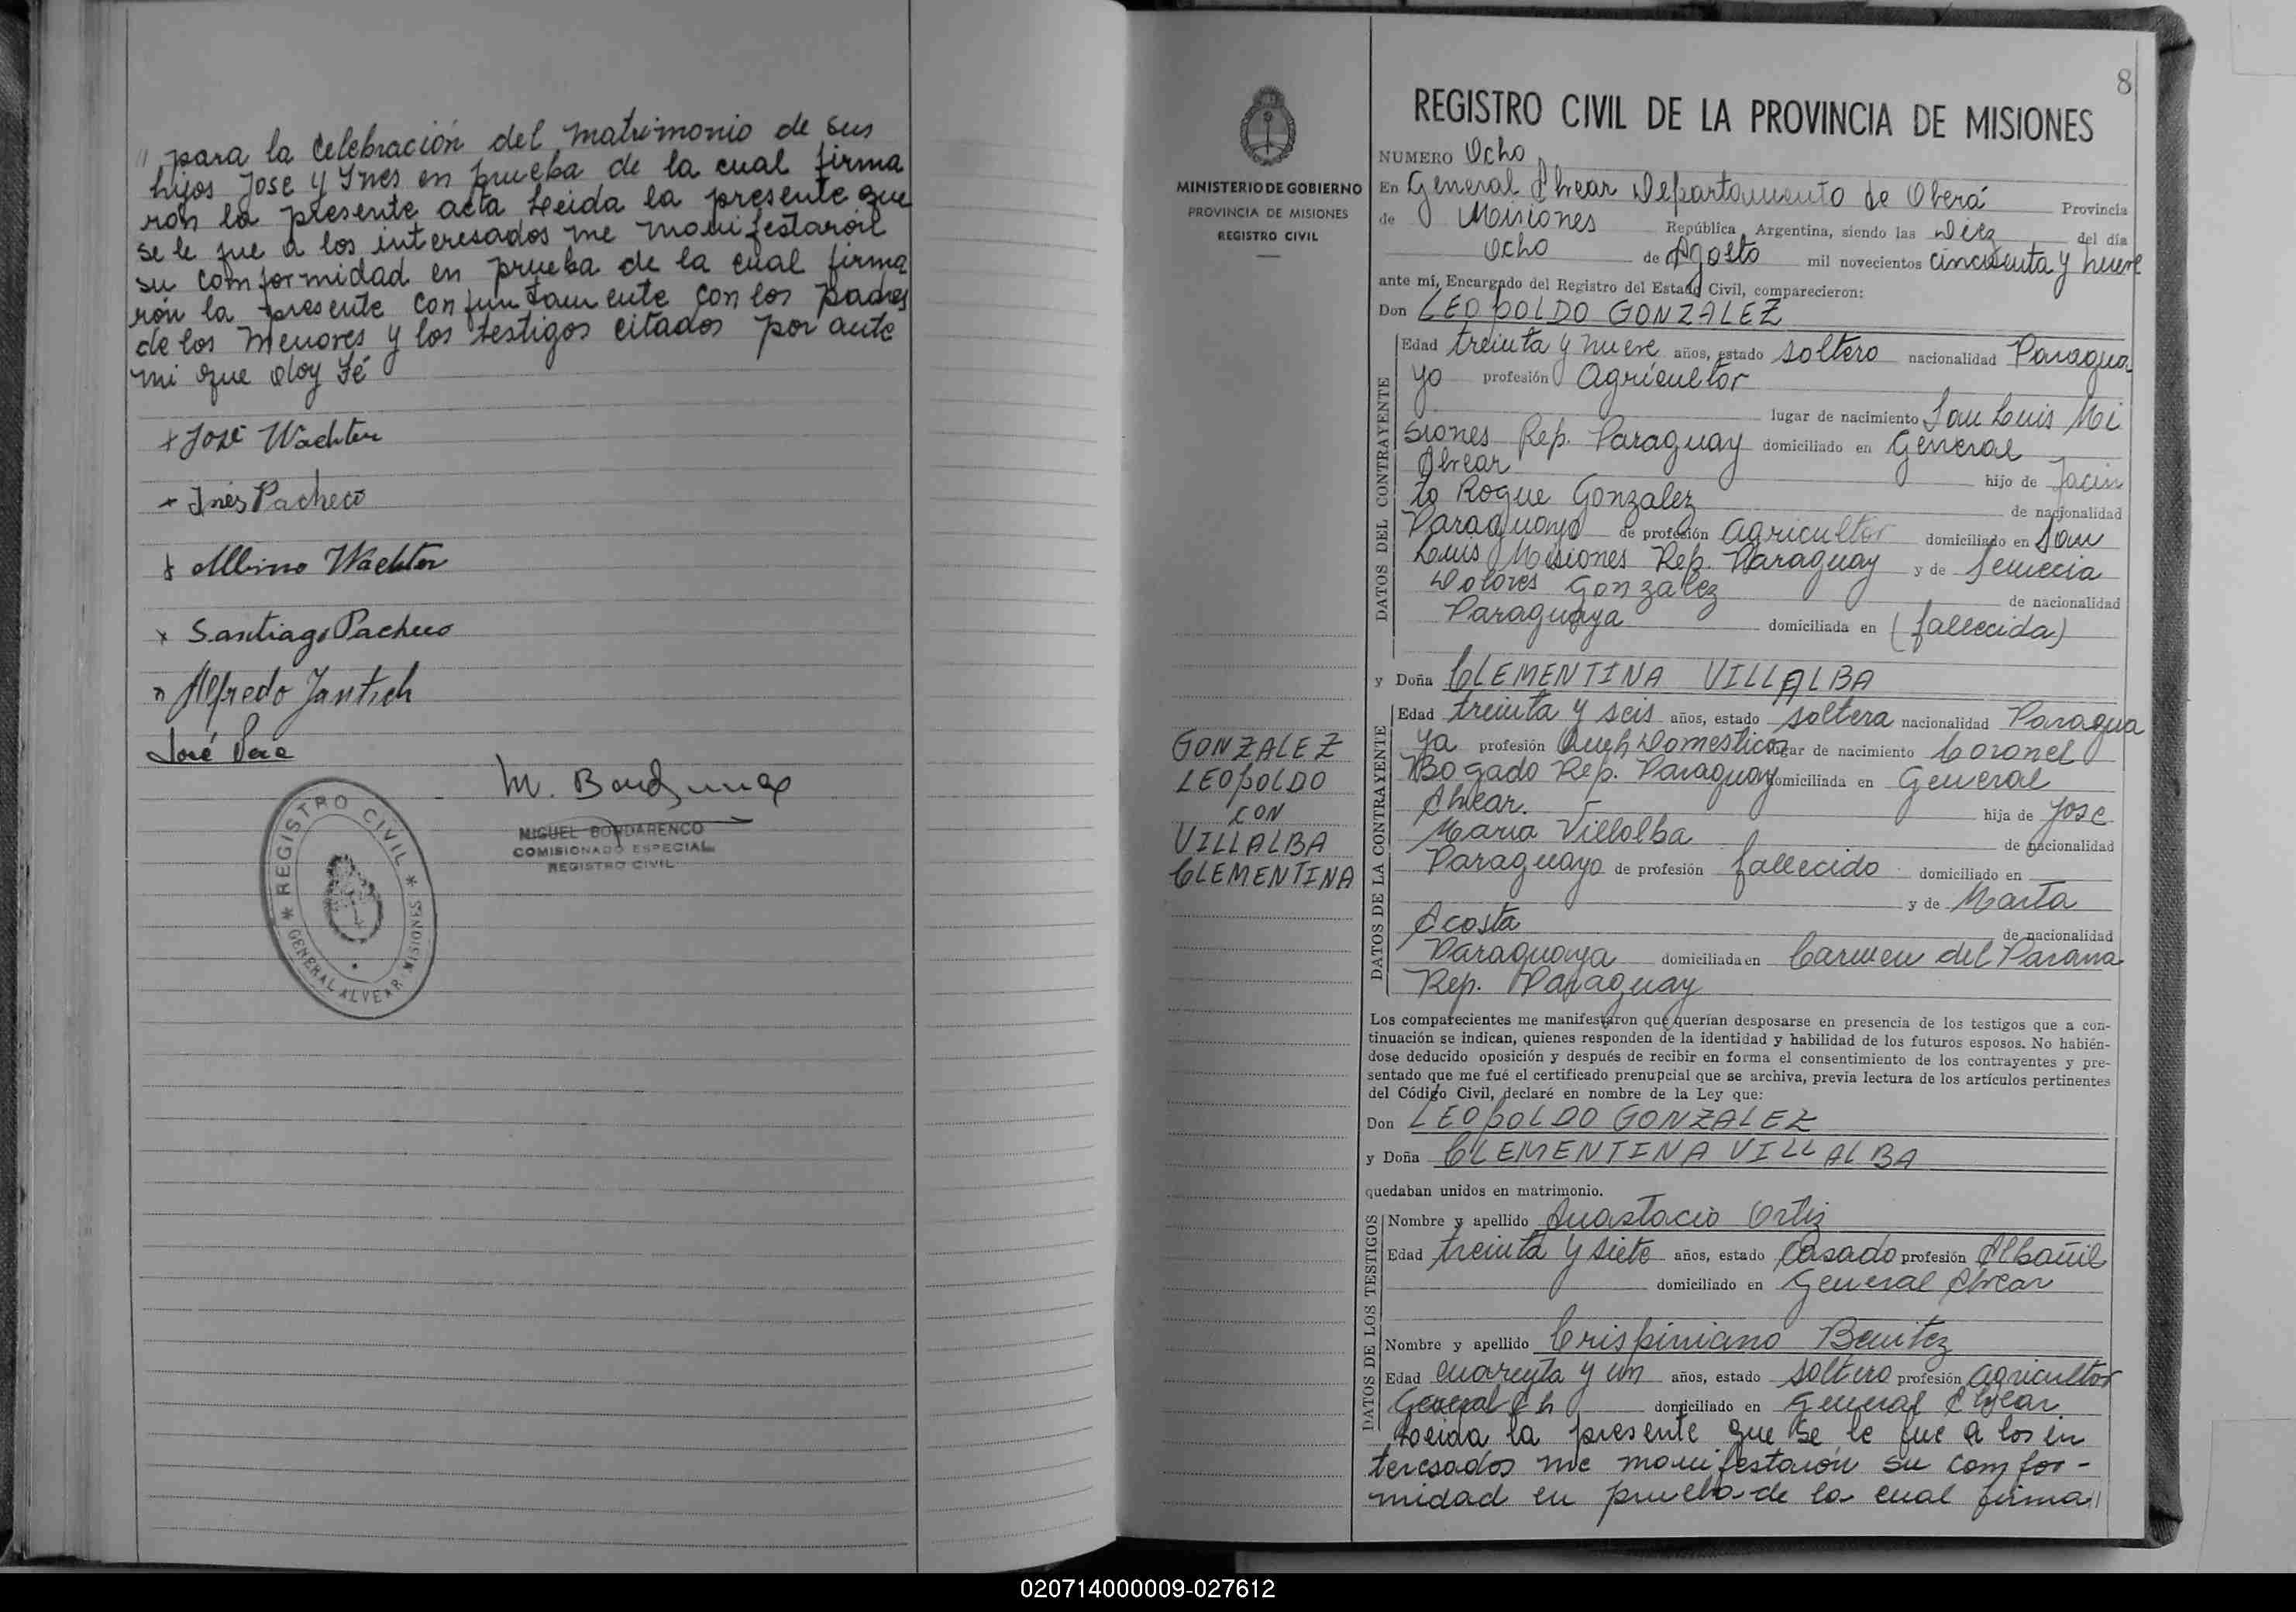 " para la Celebración del matrimonio de sus
hijos Jose y Ines en prueba de la cual firma
ron la presente acta Leida la presente que
se le fue a los interesados me manifestarón
su comformidad en prueba de la cual firma
rón la presente conjuntamente con los padres
de los menores y los testigos citados por ante
mi que doy Fé
+ José Wachter
+ Inés Pacheco
+ Albino Wachter
x Santiago Pacheco
" Alfredo Jantsch
José
M.
MIGUEL BONDARENCO
COMISIONADO ESPECIAL
REGISTRO CIVIL
* REGISTRO CIVIL *
GENERAL ALVEAR MISIONES
8
MINISTERIO DE GOBIERNO
PROVINCIA DE MISIONES
REGISTRO CIVIL
GONZALEZ
LEOPOLDO
CON
VILLALBA
CLEMENTINA
REGISTRO CIVIL DE LA PROVINCIA DE MISIONES
NUMERO Ocho
En General Alvear Departamento de Oberá Provincia
de Misiones República Argentina, siendo las Diez del día
Ocho de Agosto mil novecientos cincuenta y nueve
ante mí, Encargado del Registro del Estado Civil, comparecieron:
Don LEOPOLDO GONZALEZ
DATOS DEL CONTRAYENTE
Edad treinta y nueve años, estado soltero nacionalidad Paragua
yo profesión Agricultor
lugar de nacimiento San Luis Mi
siones Rep. Paraguay domiciliado en General
Alvear hijo de Jacin
to Roque Gonzalez de nacionalidad
Paraguayo de profesión Agricultor domiciliado en San
Luis Misiones Rep. Paraguay y de
Dolores Gonzalez de nacionalidad
Paraguaya domiciliada en (fallecida)
y Doña CLEMENTINA VILLALBA
DATOS DE LA CONTRAYENTE
Edad treinta y seis años, estado soltera nacionalidad Paragua
ya profesión Queh Domesticos lugar de nacimiento Coronel
Bogado Rep. Paraguay domiciliada en General
Alvear. hija de Jose
Maria Villalba de nacionalidad
Paraguayo de profesión fallecido domiciliado en
y de Marta
Acosta de nacionalidad
Paraguaya domiciliada en Carmen del Parana
Rep. Paraguay
Los comparecientes me manifestaron que querían desposarse en presencia de los testigos que a con-
tinuación se indican, quienes responden de la identidad y habilidad de los futuros esposos. No habién-
dose deducido oposición y después de recibir en forma el consentimiento de los contrayentes y pre-
sentado que me fué el certificado prenupcial que se archiva, previa lectura de los artículos pertinentes
del Código Civil, declaré en nombre de la Ley que:
Don LEOPOLDO GONZALEZ
y Doña CLEMENTINA VILLALBA
quedaban unidos en matrimonio.
DATOS DE LOS TESTIGOS
Nombre y apellido Anastacio Ortiz
Edad treinta y siete años, estado Casado profesión Albañil
domiciliado en General Alvear
Nombre y apellido Crispiniano Benitez
Edad cuarenta y un años, estado soltero profesión agricultor
General Alv domiciliado en General Alvear
Leida la presente que se le fue a los in
teresados me manifestarón su comfor-
midad en prueba de la cual firma"
020714000009-027612